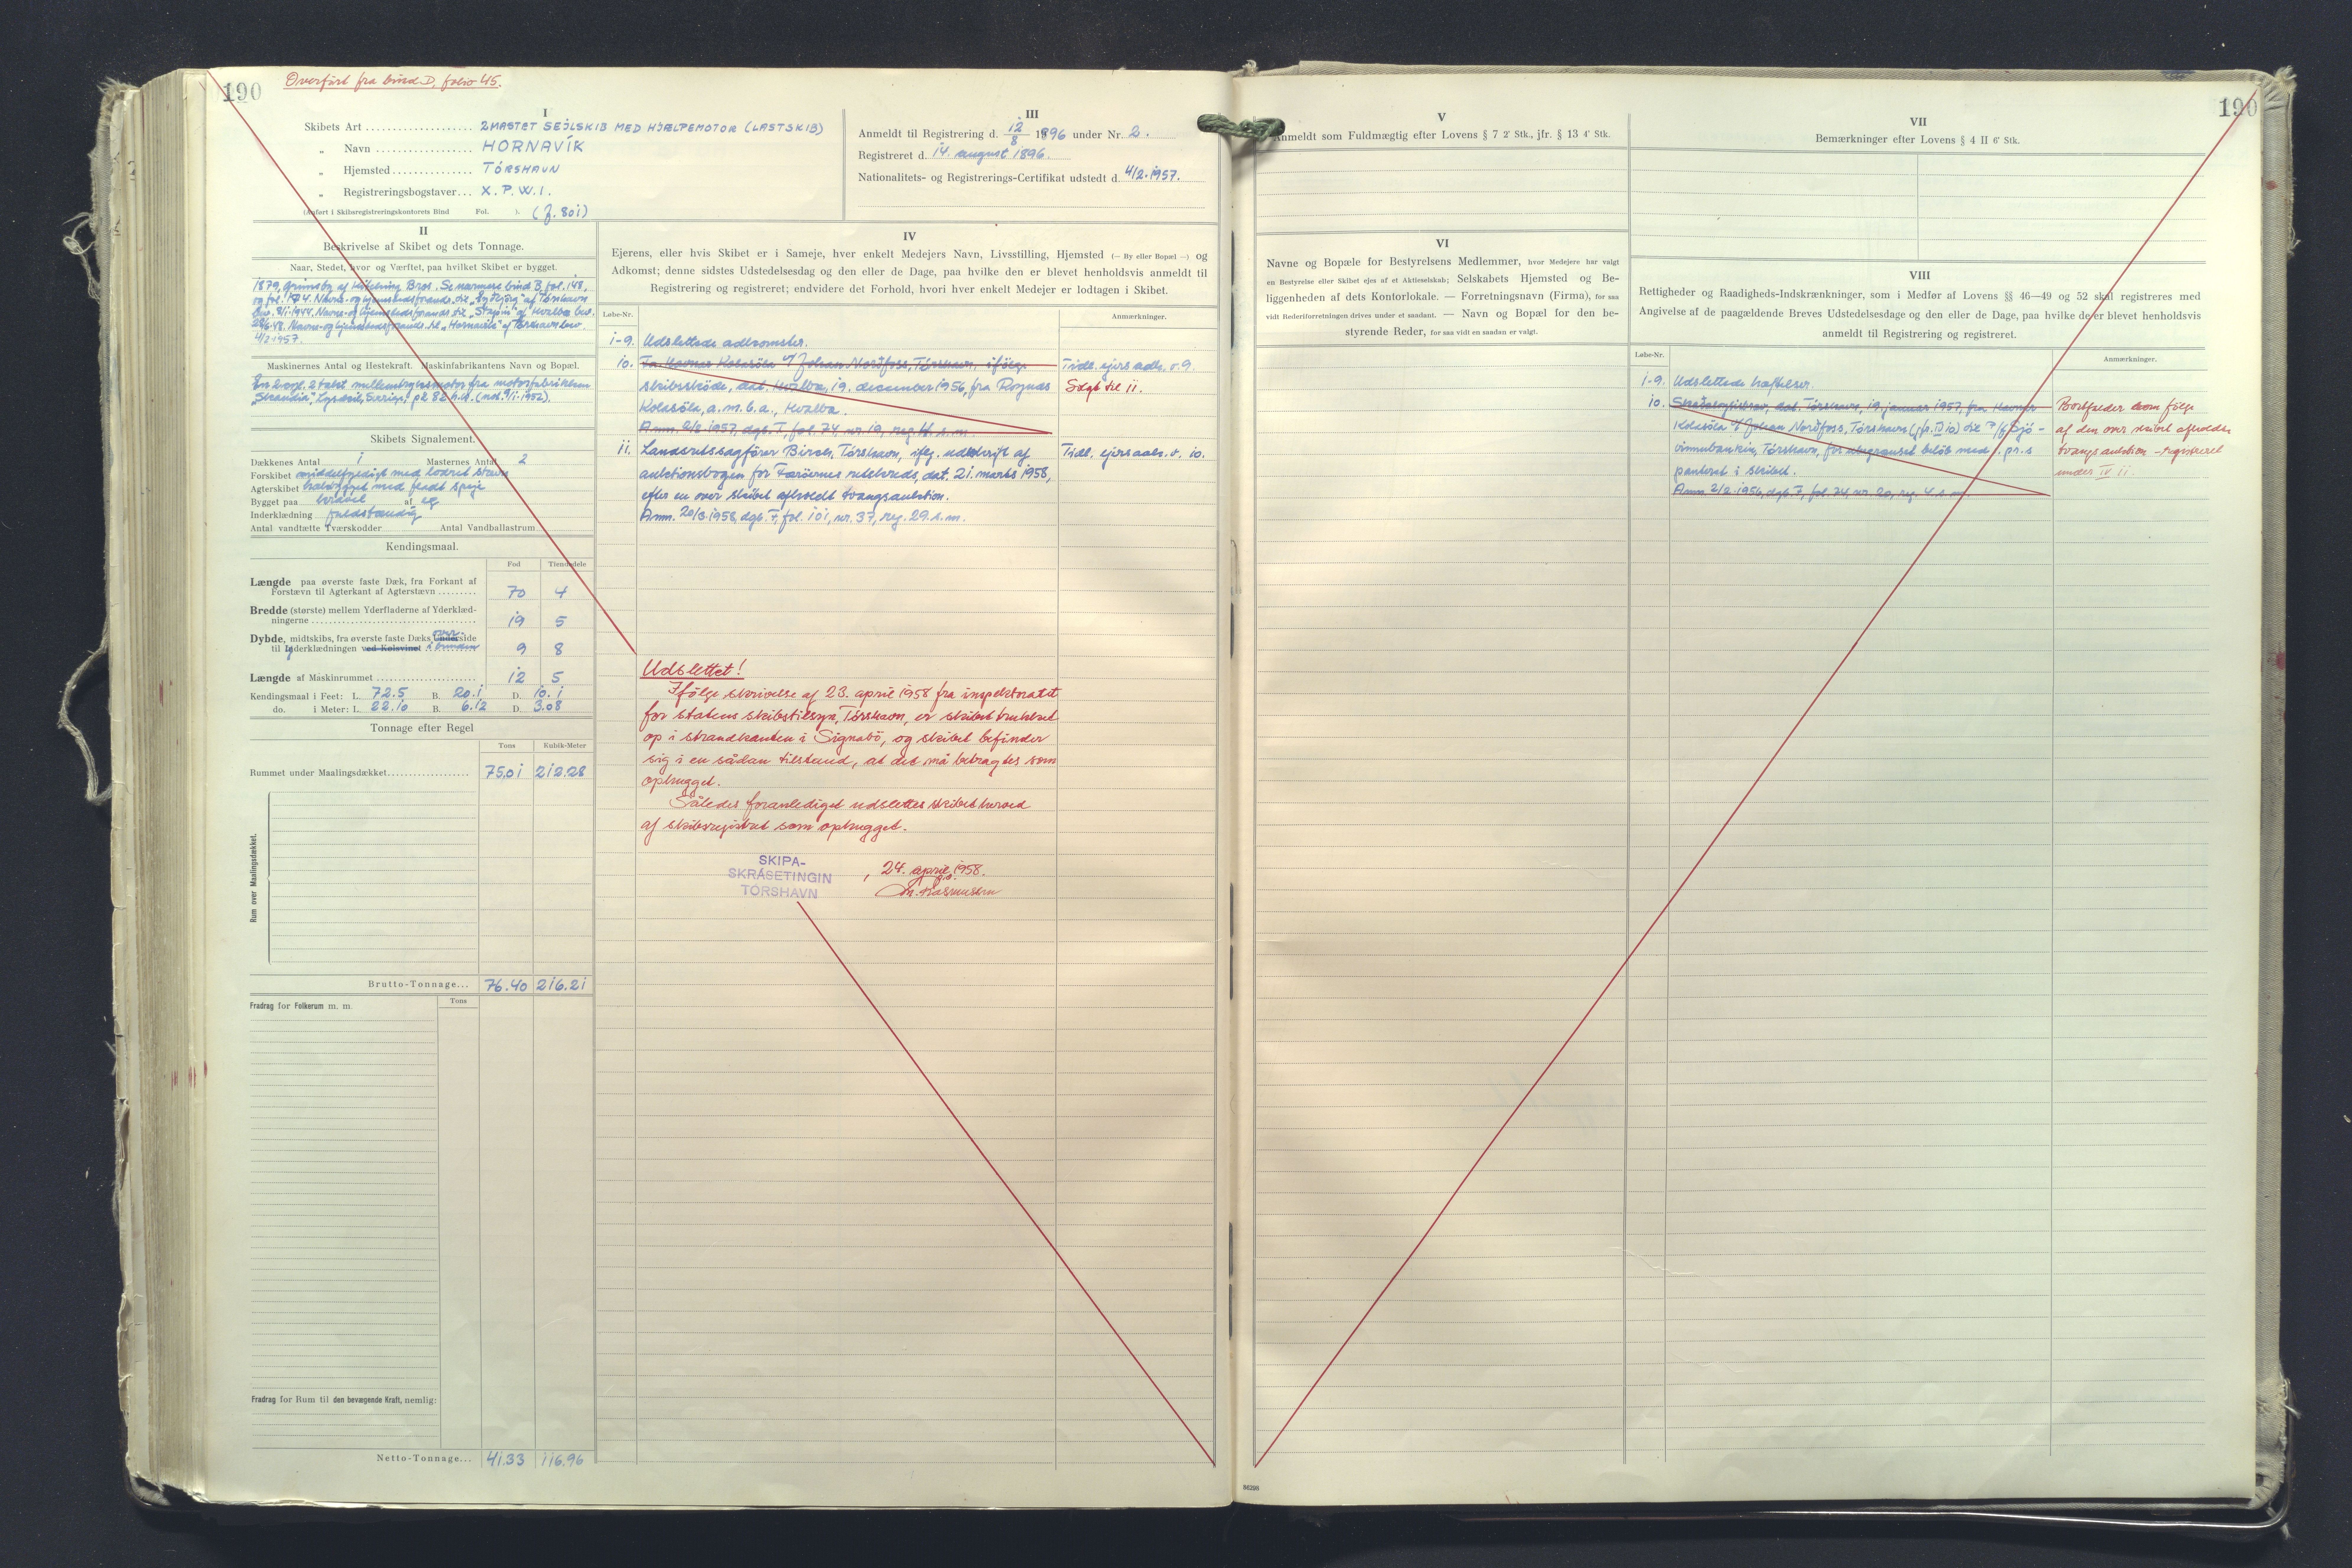 190
Overført fra bind D, folio 45.
I
Skibets Art 2MASTET SEJLSKIB MED HJÆLPEMOTOR (LASTSKIB)
„ Navn HORNAVÍK
„ Hjemsted TÓRSHAVN
„ Registreringsbogstaver X.P.W.I.
(Anført i Skibsregistreringskontorets Bind Fol. ). (J. 801)
III
Anmeldt til Registrering d. 12/8 1896 under Nr. 2.
Registreret d. 14. august 1896.
Nationalitets- og Registrerings-Certifikat udstedt d. 4/2.1957.
II
Beskrivelse af Skibet og dets Tonnage.
Naar, Stedet, hvor og Værftet, paa hvilket Skibet er bygget.
1879, Grimsby af Bros. Se nærmere bind B, fol. 148,
af Tórshavn
8/1.1944. Navne- og hjemstedsforandr. til af Hvalba
Navne- og hjemstedsforandr. til „Hornavík“ af Tórshavn
4/2 1957.
Maskinernes Antal og Hestekraft. Maskinfabrikantens Navn og Bopæl.
En 2 cyl. 2 takt mellemtryksmotor fra motorfabrikken
„Skandia“, Lysekil, Sverige, på 82 h.k. (1952).
Skibets Signalement.
Dækkenes Antal 1 Masternes Antal 2
Forskibet middelfyldigt med lodret stævn
Agterskibet med fladt spejl
Bygget paa kravel af eg
Inderklædning fuldstændig
Antal vandtætte Tværskodder Antal Vandballastrum
Kendingsmaal.
Fod Tiendedele
Længde paa øverste faste Dæk, fra Forkant af
Forstævn til Agterkant af Agterstævn 70 4
Bredde (største) mellem Yderfladerne af Yderklæd-
ningerne 19 5
Dybde, midtskibs, fra øverste faste Dæks Underside over
til Inderklædningen ved Kølsvinet 9 8
Længde af Maskinrummet 12 5
Kendingsmaal i Feet: L. 72.5 B. 20.1 D. 10.1
do. i Meter: L. 22.10 B. 6.12 D. 3.08
Tonnage efter Regel
Tons Kubik-Meter
Rummet under Maalingsdækket 75.01 212.28
Rum over Maalingsdækket.
Brutto-Tonnage 76.40 216.21
Fradrag for Folkerum m. m. Tons
Fradrag for Rum til den bevægende Kraft, nemlig:
Netto-Tonnage 41.33 116.96
IV
Ejerens, eller hvis Skibet er i Sameje, hver enkelt Medejers Navn, Livsstilling, Hjemsted (— By eller Bopæl —) og
Adkomst; denne sidstes Udstedelsesdag og den eller de Dage, paa hvilke den er blevet henholdsvis anmeldt til
Registrering og registreret; endvidere det Forhold, hvori hver enkelt Medejer er lodtagen i Skibet.
Løbe-Nr. Anmærkninger.
1-9. Udslettede adkomster.
10. Fa. Havnar Kolasøla v/ Johan Norðfoss, Tórshavn, ifølge Tidl. ejers adk. s. 9.
skibsskøde, dat. Hvalba, 19. december 1956, fra Rognds Solgt til 11.
Kolasøla, a.m.b.a., Hvalba.
Anm. 2/2.1957, dgb. F, fol. 74, nr. 19, reg. 4. s.m.
11. Landsretssagfører Birch, Tórshavn, iflg. udskrift af Tidl. ejers adk. s. 10.
auktionsbogen for Færøernes retskreds, dat. 21. marts 1958,
efter en over skibet afholdt tvangsauktion.
Anm. 20/3.1958, dgb. F, fol. 101, nr. 37, reg. 29. s.m.
Udslettet!
Ifølge skrivelse af 23. april 1958 fra inspektoratet
for statens skibstilsyn, Tórshavn, er skibet trukket
op i strandkanten i Signabø, og skibet befinder
sig i en sådan tilstand, at det må betragtes som
ophugget.
Således foranlediget udslettes skibet herved
af skibsregistret som ophugget.
SKIPA-
SKRÁSETINGIN
TÓRSHAVN
, 24. april 1958.
M. Rasmussen
190
V
Anmeldt som Fuldmægtig efter Lovens § 7 2' Stk., jfr. § 13 4' Stk.
VI
Navne og Bopæle for Bestyrelsens Medlemmer, hvor Medejere har valgt
en Bestyrelse eller Skibet ejes af et Aktieselskab; Selskabets Hjemsted og Be-
liggenheden af dets Kontorlokale. — Forretningsnavn (Firma), for saa
vidt Rederiforretningen drives under et saadant. — Navn og Bopæl for den be-
styrende Reder, for saa vidt en saadan er valgt.
VII
Bemærkninger efter Lovens § 4 II 6' Stk.
VIII
Rettigheder og Raadigheds-Indskrænkninger, som i Medfør af Lovens §§ 46—49 og 52 skal registreres med
Angivelse af de paagældende Breves Udstedelsesdage og den eller de Dage, paa hvilke de er blevet henholdsvis
anmeldt til Registrering og registreret.
Løbe-Nr. Anmærkninger.
1-9. Udslettede hæftelser.
10. Skadesløsbrev, dat. Tórshavn, 19. januar 1957, fra Havnar Bortfalder som følge
Kolasøla v/ Johan Norðfoss, Tórshavn (jfr. IV 10) til P/f Sjó- af den over skibet afholdte
vinnubankin, Tórshavn, for ubegrænset beløb med 1. pr.s tvangsauktion - registreret
panteret i skibet. under IV 11.
Anm. 2/2.1956, dgb. F, fol. 74, nr. 20, reg. 4. s.m.
86298